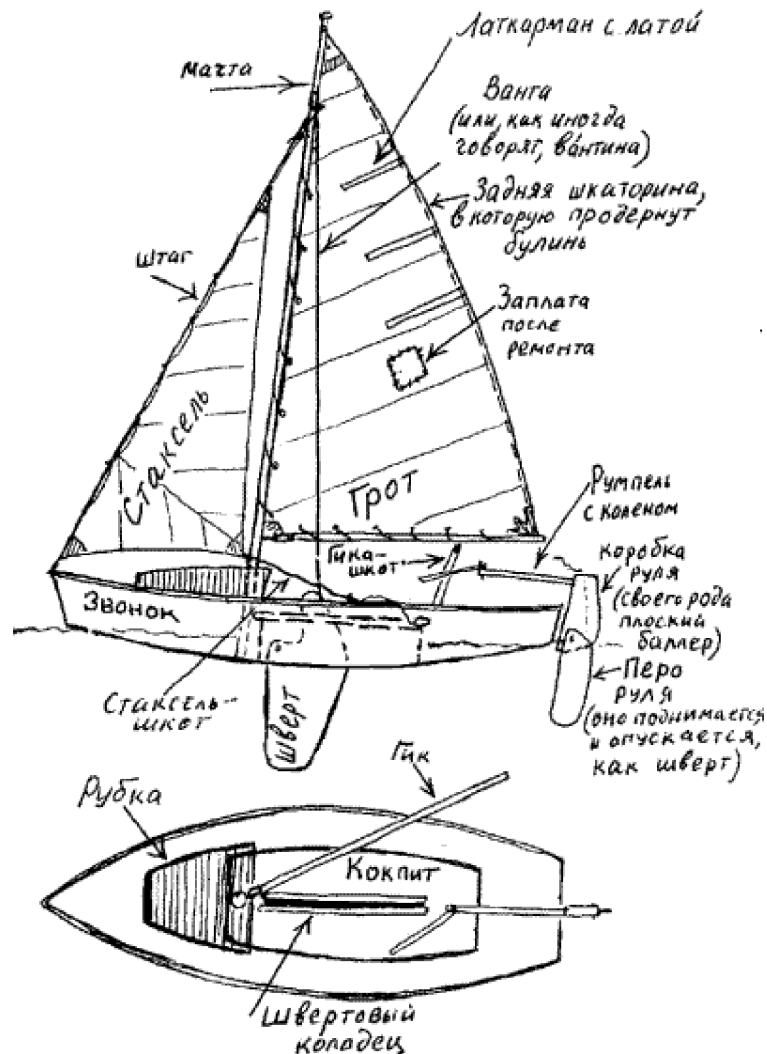 Латкарман с латой
мачта
Ванта
(или, как иногда
говорят, ва́нтина)
Задняя шкаторина,
в которую продернут
булинь
штаг
Заплата
после
ремонта
Стаксель
Грот
Румпель
с коленом
Гика-
шкот
коробка
руля
(своего рода
плоский
баллер)
Звонок
Перо
руля
(оно поднимается
и опускается,
как шверт)
Стаксель-
шкот
Шверт
Гик
Рубка
Кокпит
Швертовый
колодец